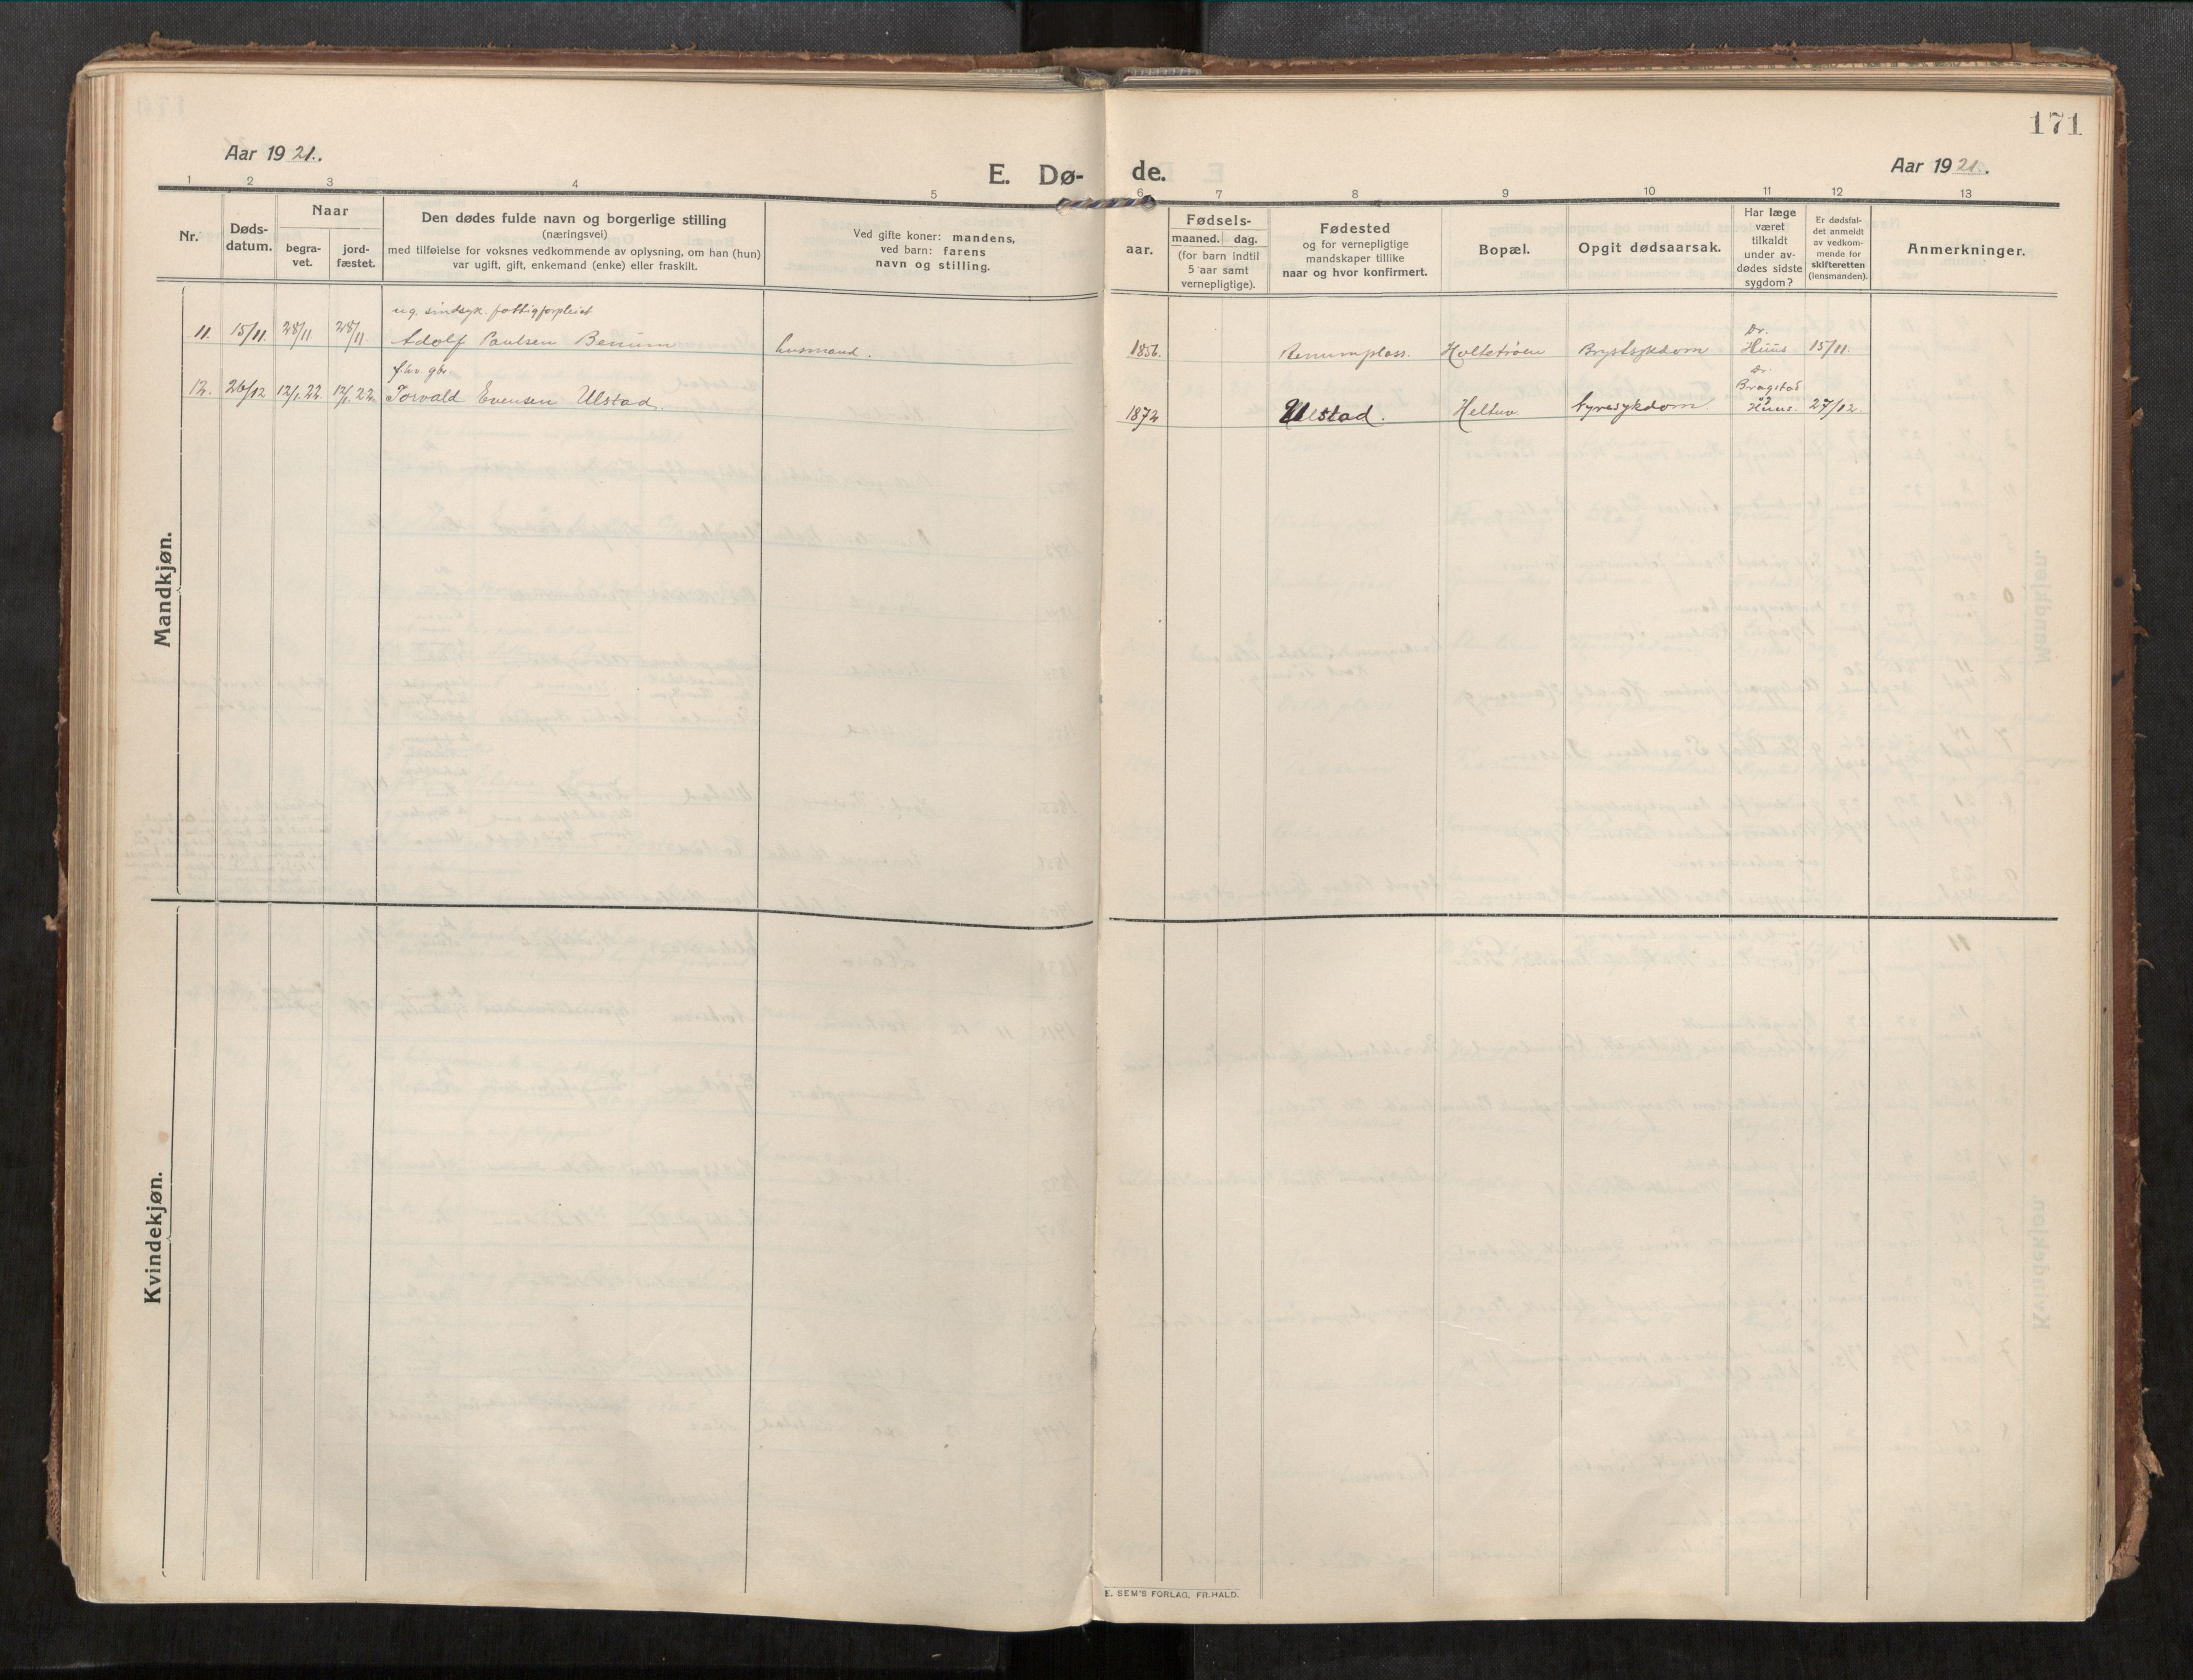 171
Aar 1921.
E. Dø- de.
Aar 1921.
1 2 3 4 5 6 7 8 9 10 11 12 13
Nr.
Døds-
datum.
Naar
begra-
vet.
jord-
fæstet.
Den dødes fulde navn og borgerlige stilling
(næringsvei)
med tilføielse for voksnes vedkommende av oplysning, om han (hun)
var ugift, gift, enkemand (enke) eller fraskilt.
Ved gifte koner: mandens,
ved barn: farens
navn og stilling.
aar.
Fødsels-
maaned. dag.
(for barn indtil
5 aar samt
vernepligtige).
Fødested
og for vernepligtige
mandskaper tillike
naar og hvor konfirmert.
Bopæl.
Opgit dødsaarsak.
Har læge
været
tilkaldt
under av-
dødes sidste
sygdom?
Er dødsfal-
det anmeldt
av vedkom-
mende for
skifteretten
(lensmanden).
Anmerkninger.
Mandkjøn.
ug. sindsyk. fattigforpleiet
11. 15/11. 28/11 28/11. Adolf Paulsen Benum husmand. 1856. Benumplass. Holtetrøen Brystsykdom Dr. Huus 15/11.
f.hv. gbr.
12. 26/12 12/1.22. 12/1.22 Torvald Evensen Ulstad. 1872 Ulstad. Heltuv. Nyresykdom. Dr. Bragstad og Huus. 27/12.
Kvindekjøn.
E. SEM'S FORLAG, FR.HALD.